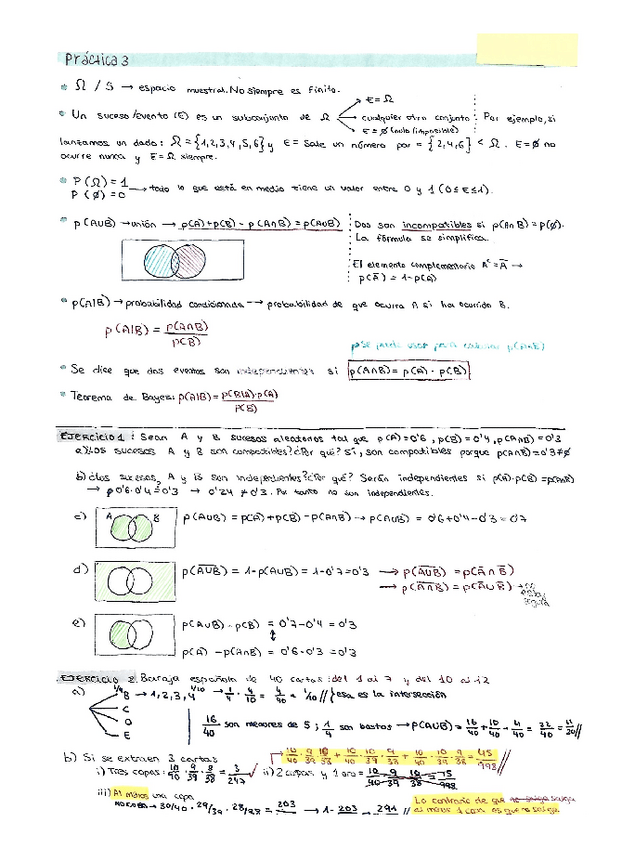 Práctica 3
* Ω / S → espacio muestral. No siempre es finito.
E = Ω
* Un suceso/evento (E) es un subconjunto de Ω cualquier otro conjunto Por ejemplo, si
E = ∅ (nulo/imposible)
lanzamos un dado: Ω = {1,2,3,4,5,6} y E = sale un número par = {2,4,6} < Ω. E = ∅ no
ocurre nunca y E = Ω siempre.
* P(Ω) = 1
P(∅) = 0 → todo lo que está en medio tiene un valor entre 0 y 1 (0 ≤ E ≤ 1).
* p(A∪B) → unión → p(A) + p(B) - p(A∩B) = p(A∪B)
Dos son incompatibles si p(A∩B) = p(∅).
La fórmula se simplifica.
El elemento complementario Aᶜ = Ā →
p(Ā) = 1 - p(A)
* p(A|B) → probabilidad condicionada → probabilidad de que ocurra A si ha ocurrido B.
p(A|B) = p(A∩B) / p(B)
se puede usar para calcular p(A∩B)
* Se dice que dos eventos son independientes si p(A∩B) = p(A) · p(B)
* Teorema de Bayes: p(A|B) = p(B|A)·p(A) / p(B)
EJERCICIO 1: Sean A y B sucesos aleatorios tal que p(A) = 0'6, p(B) = 0'4, p(A∩B) = 0'3
a) ¿Los sucesos A y B son compatibles? ¿Por qué? Sí, son compatibles porque p(A∩B) = 0'3 ≠ 0
b) ¿Los sucesos A y B son independientes? ¿Por qué? Serán independientes si p(A)·p(B) = p(A∩B)
→ 0'6·0'4 = 0'3 → 0'24 ≠ 0'3. Por tanto no son independientes.
c) A B p(A∪B) = p(A) + p(B) - p(A∩B) → p(A∪B) = 0'6 + 0'4 - 0'3 = 0'7
d) p(A̅∪̅B̅) = 1 - p(A∪B) = 1 - 0'7 = 0'3 → p(A̅∪̅B̅) = p(Ā ∩ B̅)
→ p(A̅∩̅B̅) = p(Ā ∪ B̅)
e) p(A∪B) - p(B) = 0'7 - 0'4 = 0'3
p(A) - p(A∩B) = 0'6 - 0'3 = 0'3
EJERCICIO 2: Baraja española de 40 cartas: del 1 al 7 y del 10 al 12
a) 1/4 B → 1, 2, 3, 4 4/10 → 1/4 · 4/10 = 4/40 = 1/10 // esa es la intersección
C
O
E
16/40 son menores de 5; 1/4 son bastos → p(A∪B) = 16/40 + 10/40 - 4/40 = 22/40 = 11/20 //
b) Si se extraen 3 cartas
i) Tres copas: 10/40 · 9/39 · 8/38 = 3/247
ii) 2 copas y 1 oro =
iii) Al menos una copa
→ 30/40 · 29/39 · 28/38 = 203 → 1 - 203 = 291 //
Lo contrario de que salga
al menos 1 copa es que no salga